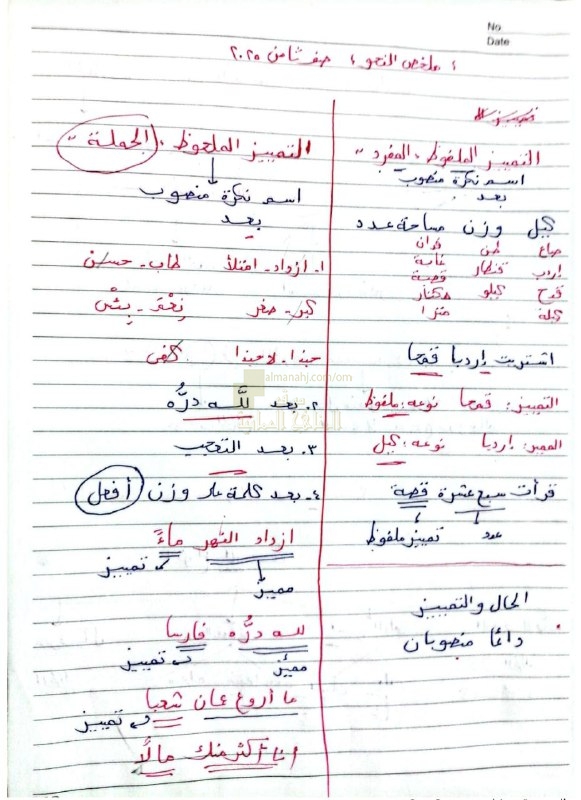 No
Date
ملخص النحو ؛ صف ثامن ٢٠٢٥
التمييز الملفوظ . المفرد
اسم نكرة منصوب
بعد
كيل وزن مساحة عدد
صاع طن فدان
إردب قنطار قصبة
قدح كيلو هكتار
كيلة مترا
اشتريت إردبا قمحا
التمييز: قمحا نوعه: ملفوظ
المميز: إردبا نوعه: كيل
قرأت سبع عشرة قصة
عدد تمييز ملفوظ
الحال والتمييز
دائما منصوبان
التمييز الملحوظ . الجملة
اسم نكرة منصوب
بعد
١. ازداد - امتلأ طاب - حسن
كبر - صغر نِعْمَ - بِئْس
حبذا - لا حبذا كفى
٢. بعد لله درُّه
٣. بعد التعجب
٤. بعد كلمة على وزن أفعل
ازداد النهر ماءً
مميز تمييز
لله درُّه فارسا
مميز تمييز
ما أروع عمان شعبا
تمييز
أنا أكثر منك مالًا
almanahj.com/om
موقع
المناهج العمانية